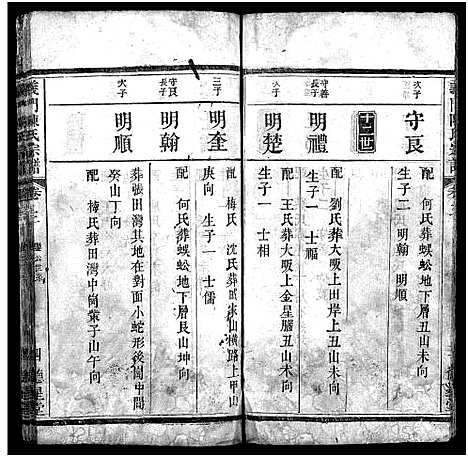 義門陳氏宗譜
次子
守良
配 何氏葬蜈蚣地下層丑山未向
生子二 明翰 明順
十二世
守善長子
明禮
配 劉氏葬大畈上田岸上丑山未向
生子一 士福
次子
明楚
配 王氏葬大畈上金星腦丑山未向
生子一 士相
三子
明奎
配 梅氏 沈氏葬 山橫路上甲山
庚向 生子一 士儒
守良長子
明翰
配 何氏葬蜈蚣地下層艮山坤向
次子
明順
葬張田灣其地在對面小蛇形後園中間
癸山丁向
配 梅氏葬田灣中 子山午向
義門陳氏宗譜
卷
四